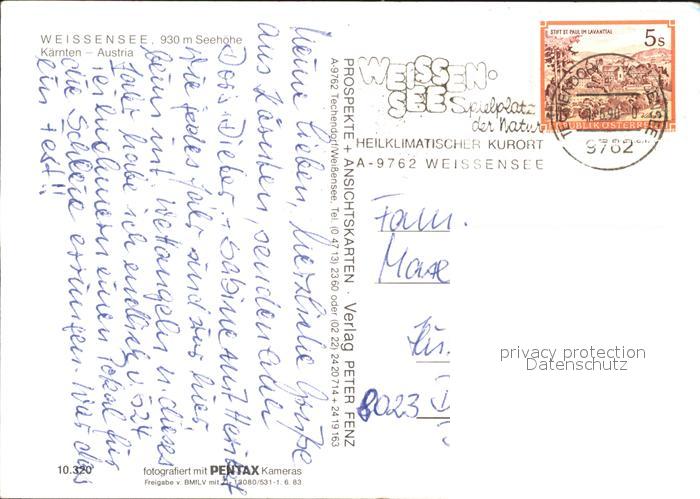 WEISSENSEE, 930 m Seehöhe
Kärnten – Austria
Meine Lieben, Herzliche Grüße
aus Kärnten, senden euch
Dieter + Sabine mit Herbert
Wie jedes Jahr sind wir hier
beim int. Wettangeln u. dieses
Jahr habe ich endlich v. 524
Teilnehmern einen Pokal für
die Schleie errungen. War das
ein Fest!!
PROSPEKTE + ANSICHTSKARTEN · Verlag PETER FENZ
A-9762 Techendorf/Weißensee, Tel. (0 47 13) 23 60 oder (02 22) 24 20 714 + 24 19 163
WEISSEN-
SEE Spielplatz
der Natur
HEILKLIMATISCHER KURORT
A-9762 WEISSENSEE
STIFT ST. PAUL IM LAVANTTAL
5s
REPUBLIK ÖSTERREICH
9762
Fam.
8023
privacy protection
Datenschutz
10.320
fotografiert mit PENTAX Kameras
Freigabe v. BMfLV mit Zl. 13080/531-1. 6. 83